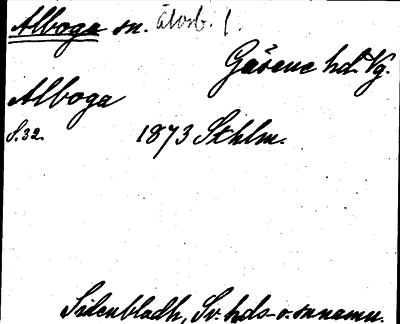 Alboga sn. älvsb. f.
Gäsene hd. Vg.
Alboga
S. 32. 1873 Sthlm.
Sidenbladh, Sv. hds- o. snnamn.